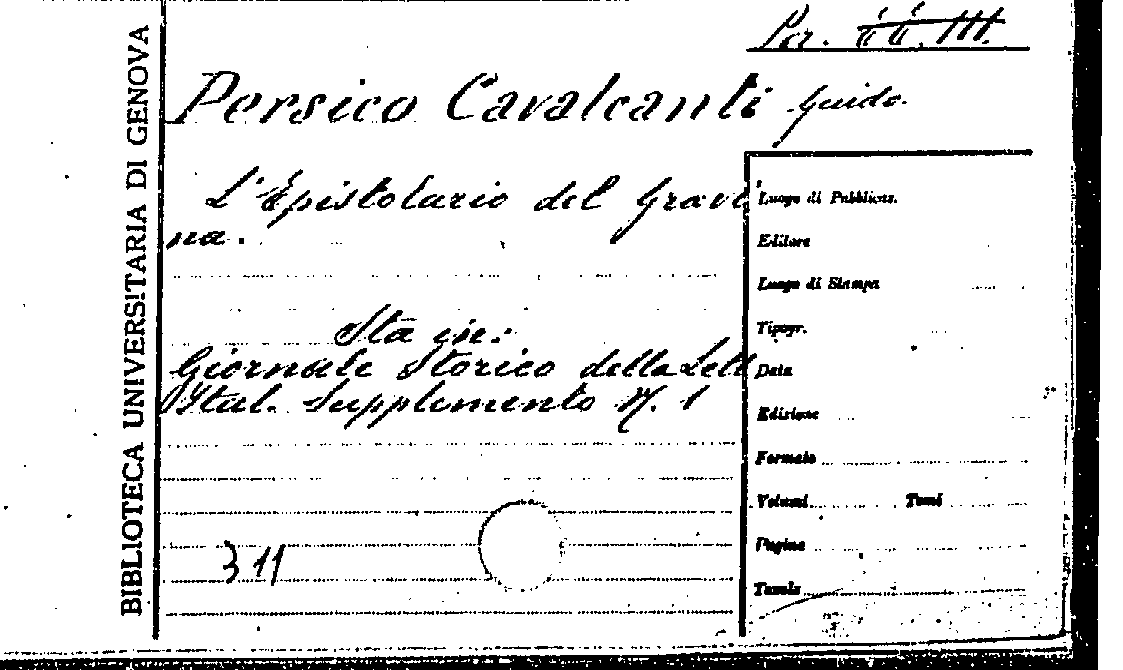 Per.
Persico Cavalcanti Guido.
L'Epistolario del Gravi
na.
Sta in:
Giornale Storico della Lett
Ital. Supplemento N. 1
311
BIBLIOTECA UNIVERSITARIA DI GENOVA
Luogo di Pubblicaz.
Editore
Luogo di Stampa
Tipogr.
Data
Edizione
Formato
Volumi Tomi
Pagine
Tavole